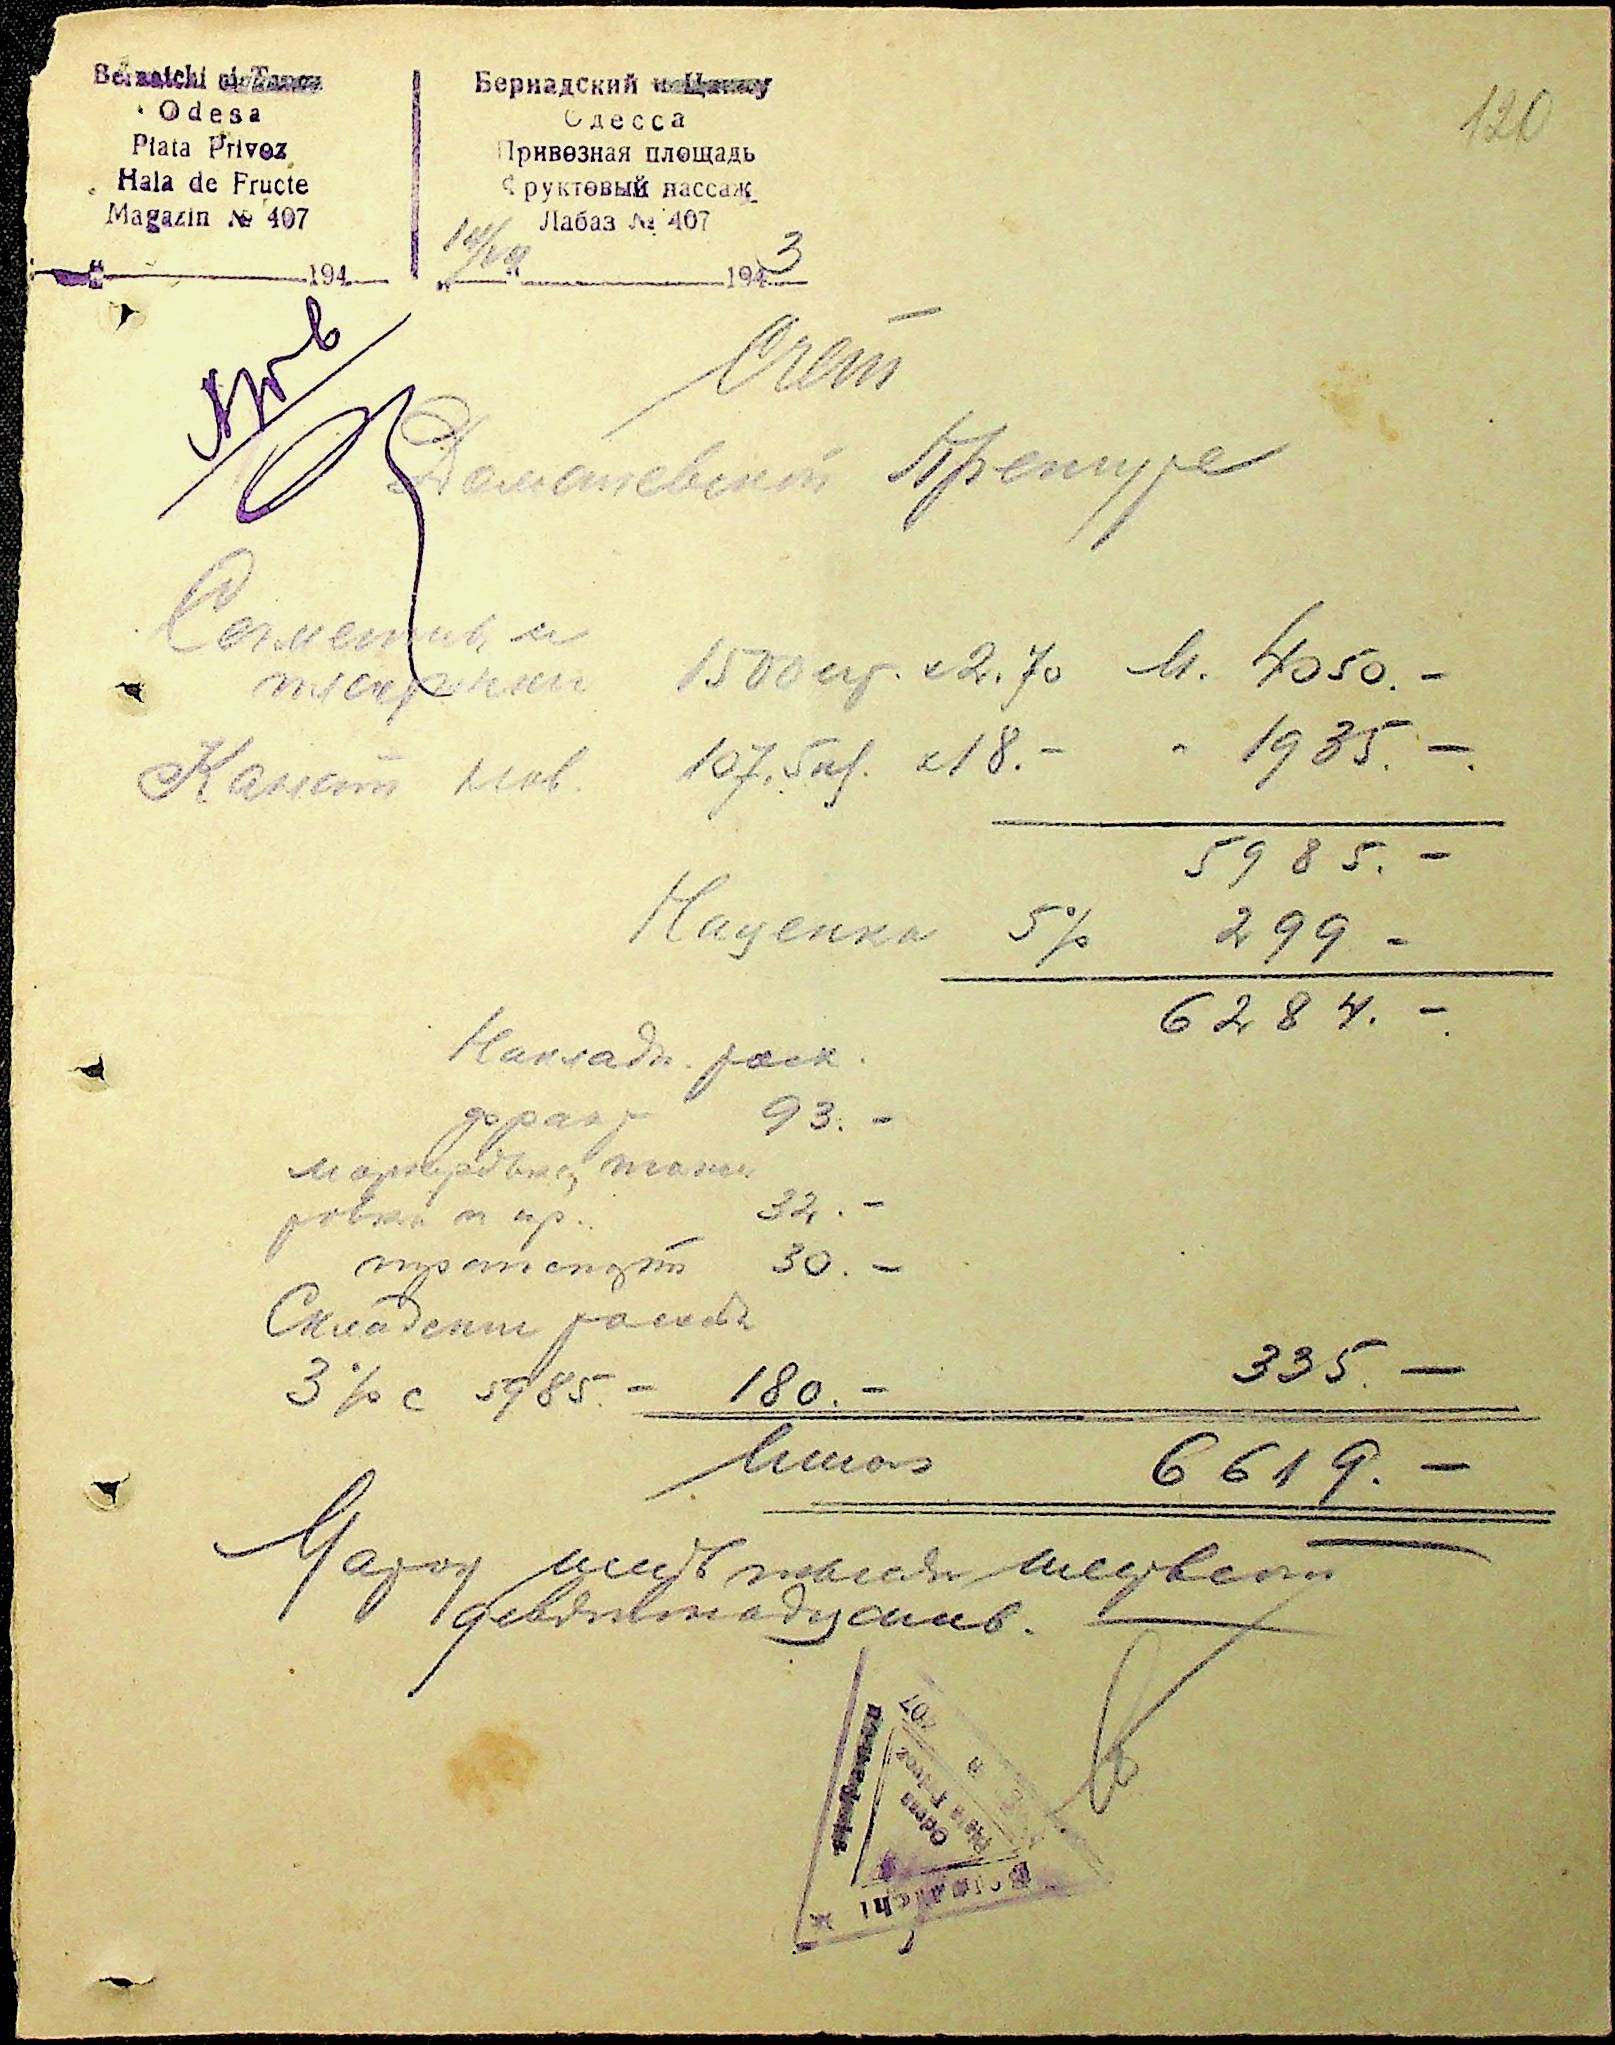 Bernatchi
Odesa
Piata Privoz
Hala de Fructe
Magazin № 407
194
Бернадский
Одесса
Привозная площадь
Фруктовый пассаж
Лабаз № 407
14/VII 1943
120
Счет
Доманевской Претуре
и
1500 шт. х 2.70 М. 4050.-
Канат нов. 107,5 кг. х 18.- " 1935.-
5985.-
Наценка 5% 299-
6284.-
Накладн. расх.
93.-
ровка и пр. 32.-
транспорт 30.-
Складские расходы
3% с 5985.- 180.- 335.-
Итого 6619.-
Марок шесть тысяч шестьсот
девятнадцать.
Bernatchi
Odesa
Piata Privoz
407